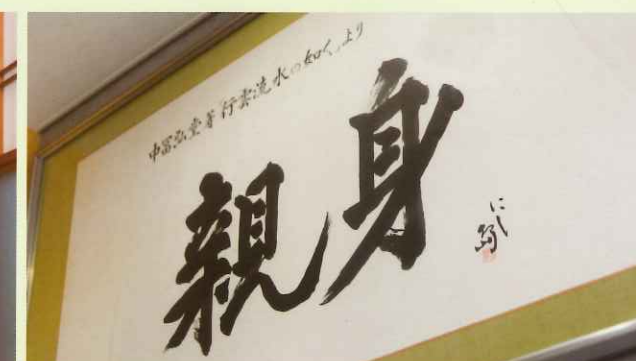 中冨弘堂著「行雲流水の如く」より
親身